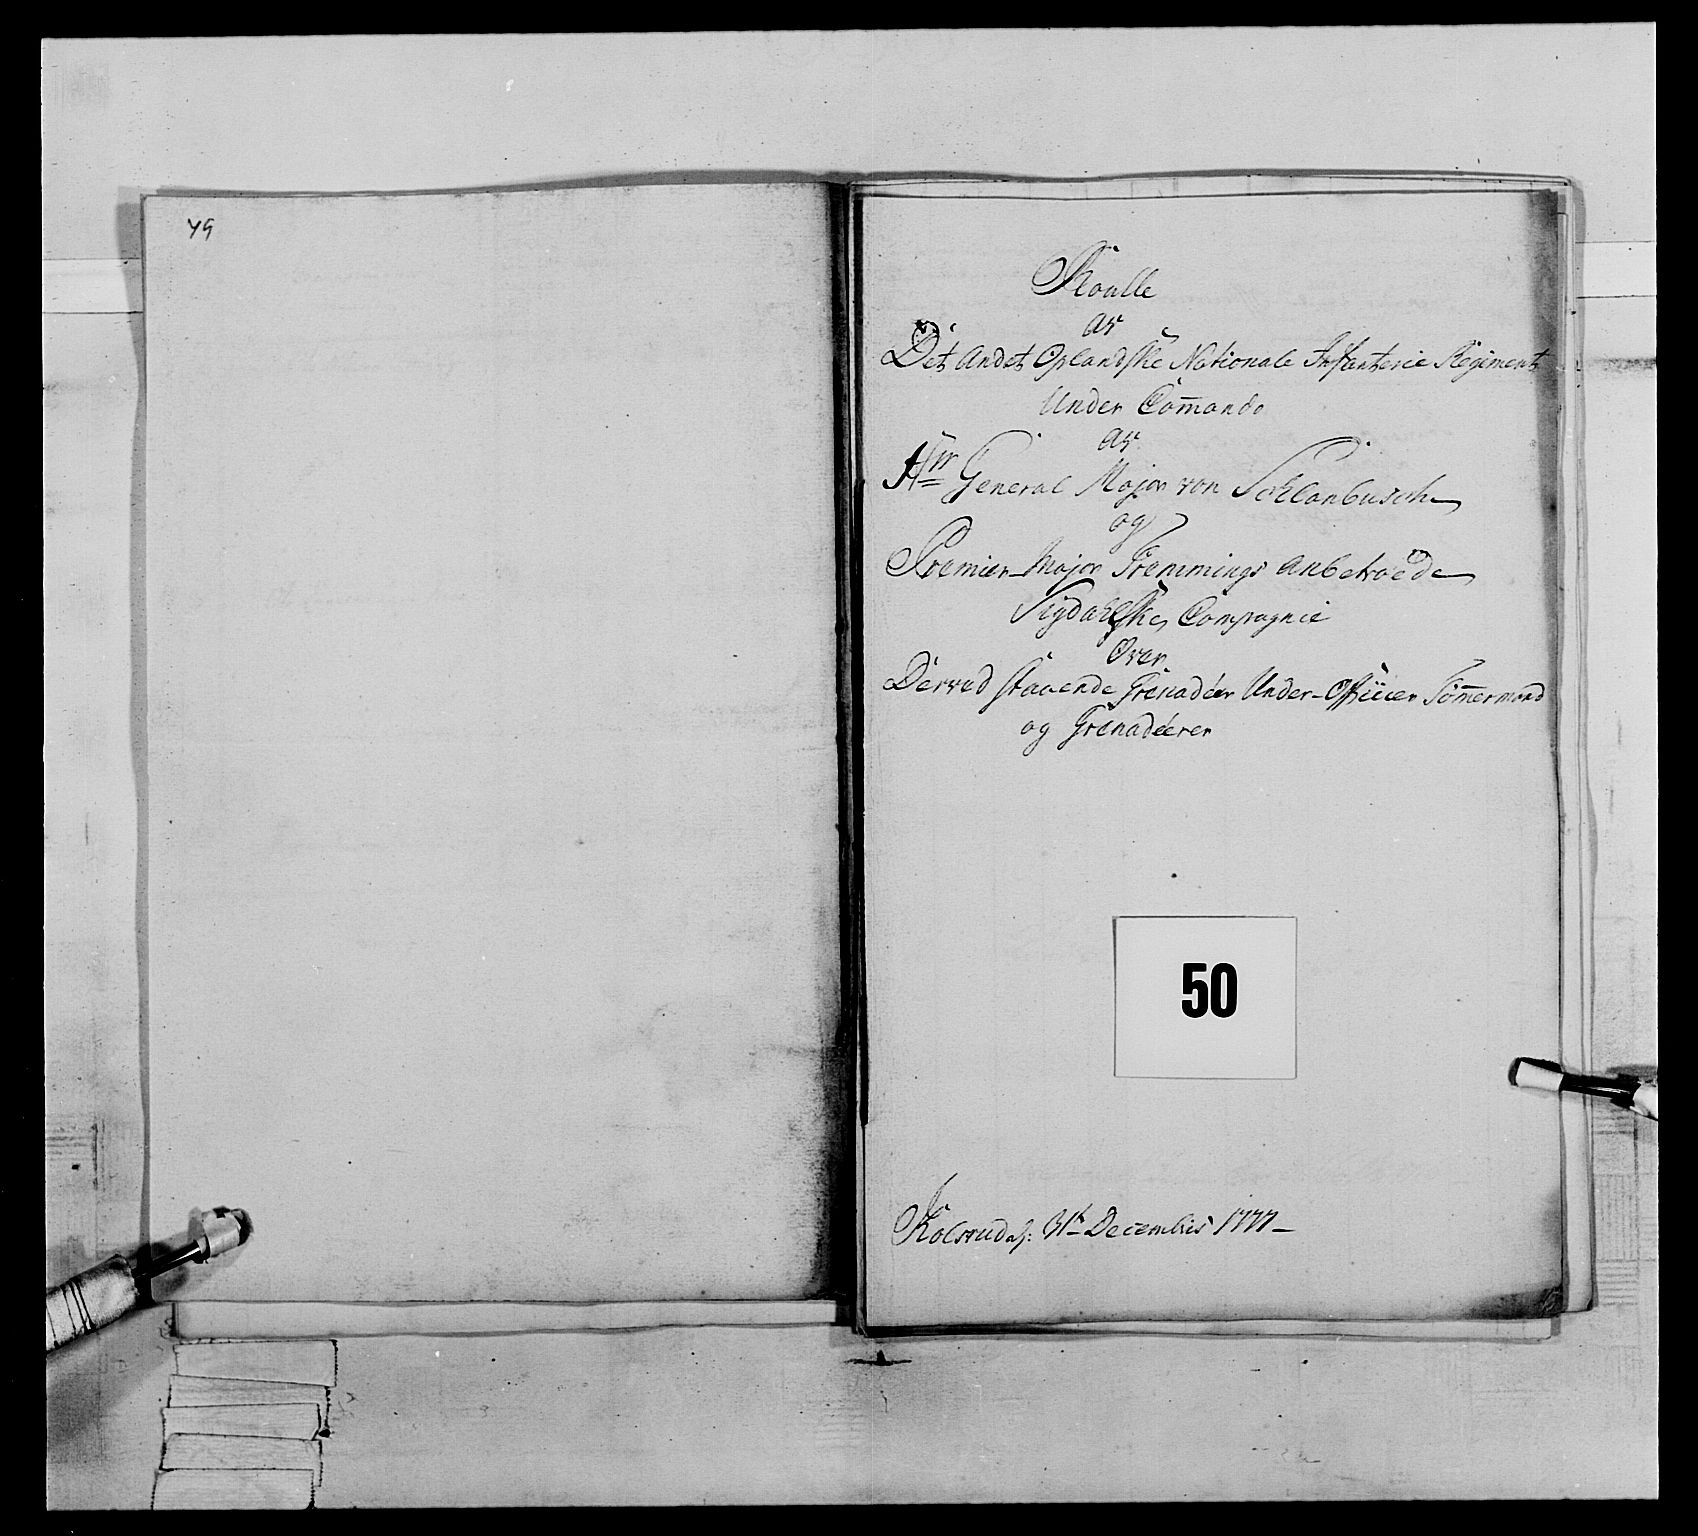 49
Roulle
af
Det Andet Oplandske Nationale Infanterie Regiment
Under Com̅ando
af
Hrr General Major von Schlanbusch
og
Premier-Major Fremmings anbetroede
Sigdahlske Compagnie
Over
Derved staaende Grenadéer Under-Officier Tøm̅ermænd
og Grenadéerer
50
Kolsrud d: 31t Decembris 1777